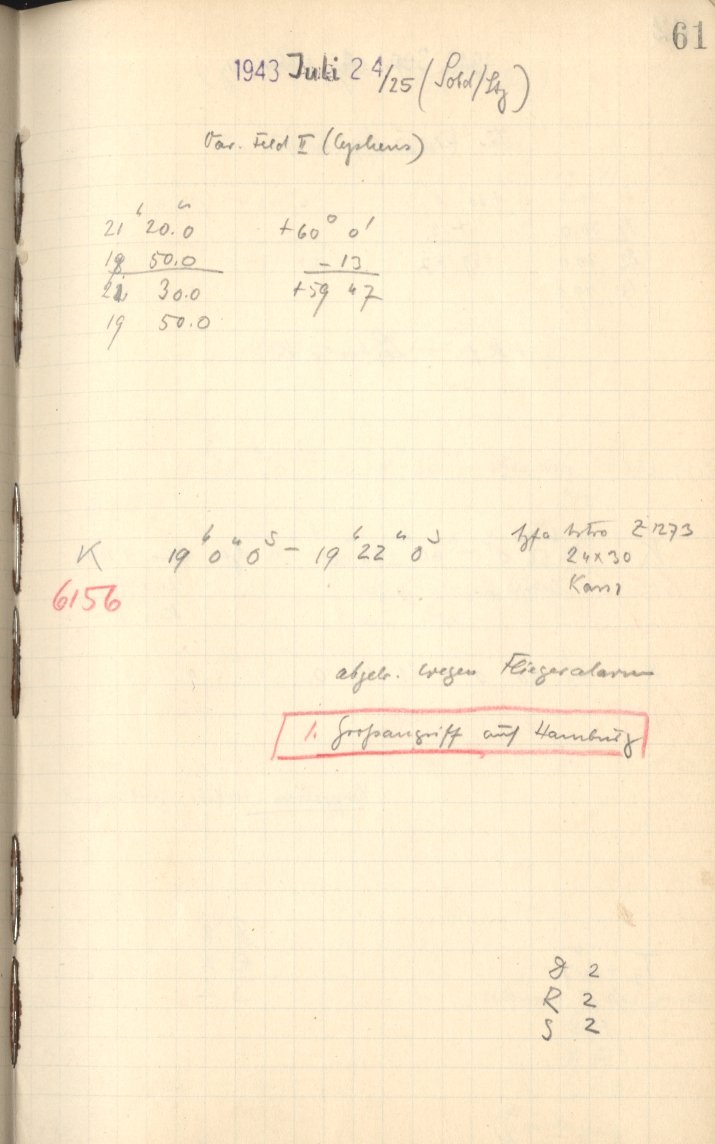 61
1943 Juli 24/25 (Sold/Stz)
Var. Feld II (Cepheus)
21ʰ 20.0ᵐ +60° 0'
18 50.0 - 13
21 30.0 +59 47
19 50.0
K 19ʰ 0ᵐ 0ˢ - 19ʰ 22ᵐ 0ˢ Agfa Astro Z 1273
6156 24x30
abgebr. wegen Fliegeralarm
1. Großangriff auf Hamburg
D 2
R 2
S 2